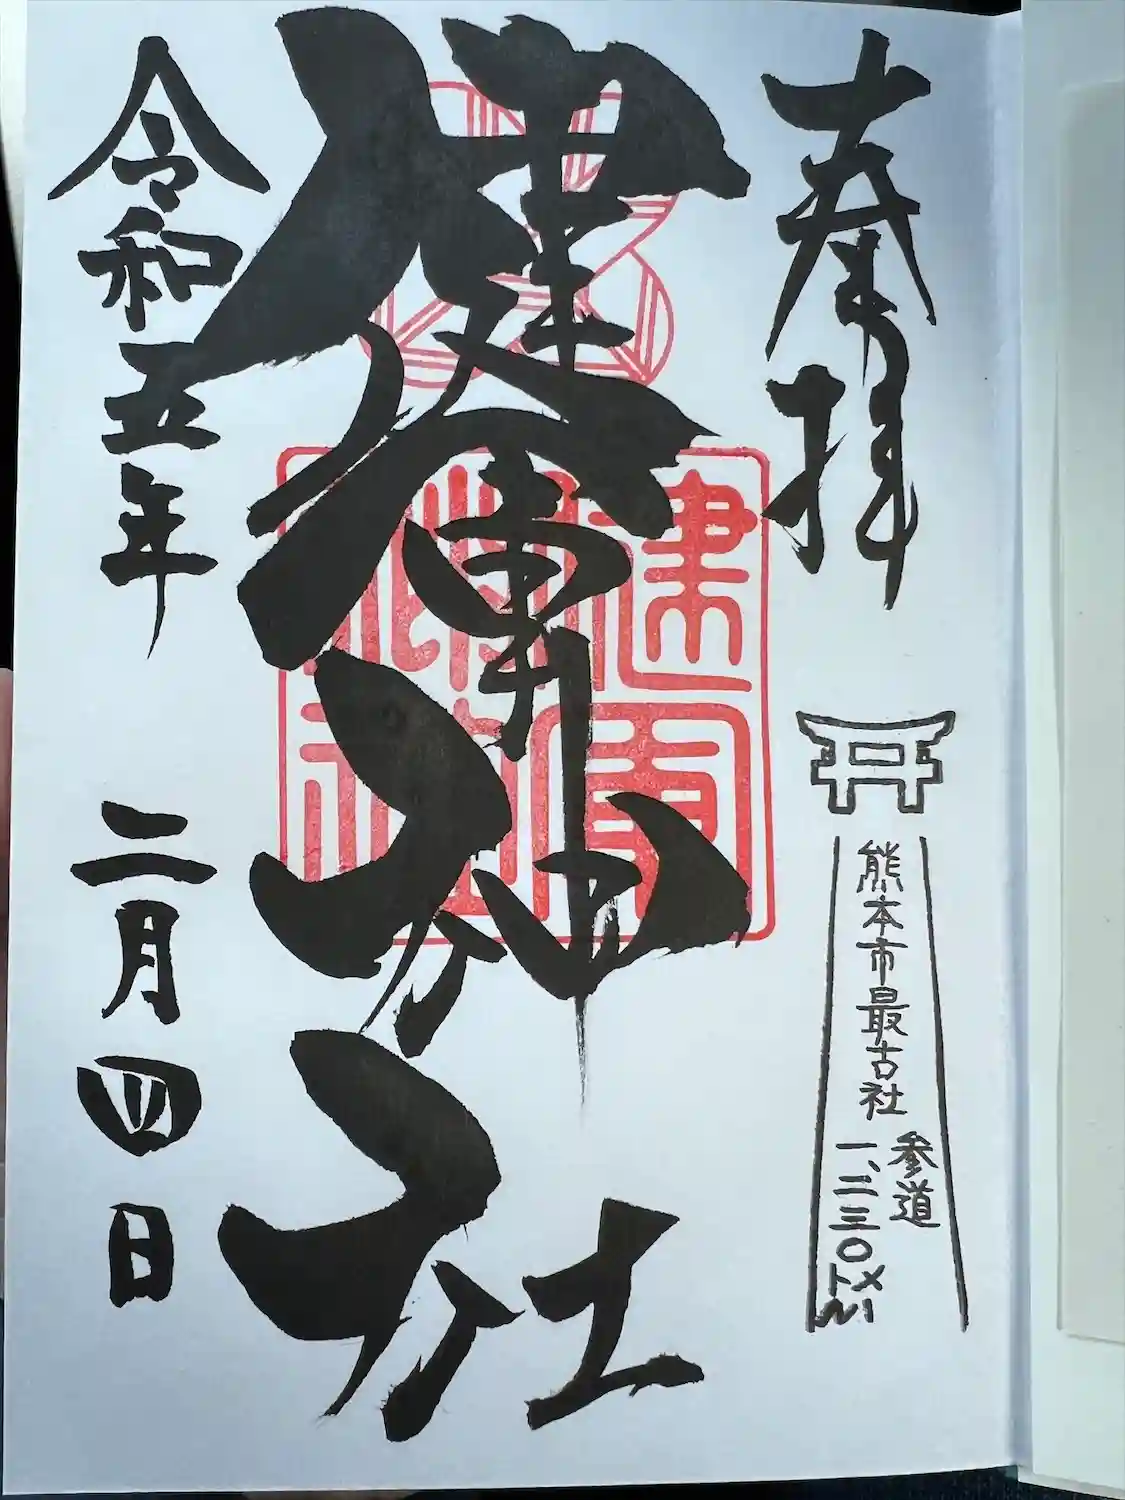 奉拝
熊本市最古社
参道
一、二三〇メートル
健軍神社
健軍神社
令和五年 二月四日